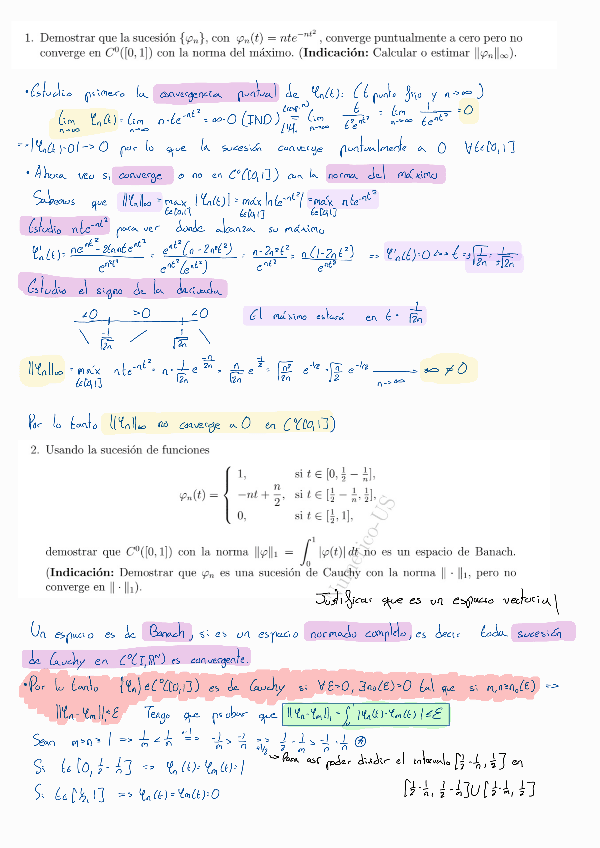 1. Demostrar que la sucesión {φₙ}, con φₙ(t) = nte^{-nt²}, converge puntualmente a cero pero no
converge en C⁰([0,1]) con la norma del máximo. (Indicación: Calcular o estimar ‖φₙ‖∞).
• Estudio primero la convergencia puntual de φₙ(t): (t punto fijo y n→∞)
lim n→∞ φₙ(t) = lim n→∞ n·te^{-nt²} = ∞·0 (IND) = lim n→∞ t/(t²e^{nt²}) = lim n→∞ 1/(te^{nt²}) = 0
=> |φₙ(t)-0| → 0 por lo que la sucesión converge puntualmente a 0 ∀t∈[0,1]
• Ahora veo si converge o no en C⁰([0,1]) con la norma del máximo
Sabemos que ‖φₙ‖∞ = máx t∈[0,1] |φₙ(t)| = máx t∈[0,1] |nte^{-nt²}| = máx t∈[0,1] nte^{-nt²}
Estudio nte^{-nt²} para ver donde alcanza su máximo
φ'ₙ(t) = = e^{nt²}(n-2n²t²)/(e^{nt²}(e^{nt²})) = (n-2n²t²)/e^{nt²} = n(1-2nt²)/e^{nt²} => φ'ₙ(t)=0 <=> t=±√(1/2n) = ±1/√2n
Estudio el signo de la derivada
<0 >0 <0 El máximo estará en t = 1/√2n
-1/√2n 1/√2n
‖φₙ‖∞ = máx t∈[0,1] nte^{-nt²} = n·1/√2n e^{-n/2n} = n/√2n e^{-1/2} = √(n²/2n) e^{-1/2} = √(n/2) e^{-1/2} → n→∞ ∞ ≠ 0
Por lo tanto ‖φₙ‖∞ no converge a 0 en C⁰([0,1])
2. Usando la sucesión de funciones
1, si t ∈ [0, 1/2 − 1/n],
φₙ(t) = { −nt + n/2, si t ∈ [1/2 − 1/n, 1/2],
0, si t ∈ [1/2, 1],
demostrar que C⁰([0,1]) con la norma ‖φ‖₁ = ∫₀¹ |φ(t)| dt no es un espacio de Banach.
(Indicación: Demostrar que φₙ es una sucesión de Cauchy con la norma ‖·‖₁, pero no
converge en ‖·‖₁).
Justificar que es un espacio vectorial
Un espacio es de Banach, si es un espacio normado completo, es decir toda sucesión
de Cauchy en C⁰(I,ℝᴺ) es convergente.
• Por lo tanto {φₙ}∈C⁰([0,1]) es de Cauchy si ∀ε>0, ∃n₀(ε)>0 tal que si m,n≥n₀(ε) =>
‖φₙ-φₘ‖₁≤ε Tengo que probar que ‖φₙ-φₘ‖₁ = ∫₀¹ |φₙ(t)-φₘ(t)| ≤ε
Sean m>n≥1 => 1/m < 1/n => -1/m > -1/n => 1/2 - 1/m > 1/2 - 1/n ⊛
Si t∈[0, 1/2 - 1/n] => φₙ(t)=φₘ(t)=1 → Para así poder dividir el intervalo [1/2 - 1/n, 1/2] en
Si t∈[1/2, 1] => φₙ(t)=φₘ(t)=0 [1/2 - 1/n, 1/2 - 1/m]∪[1/2 - 1/m, 1/2]